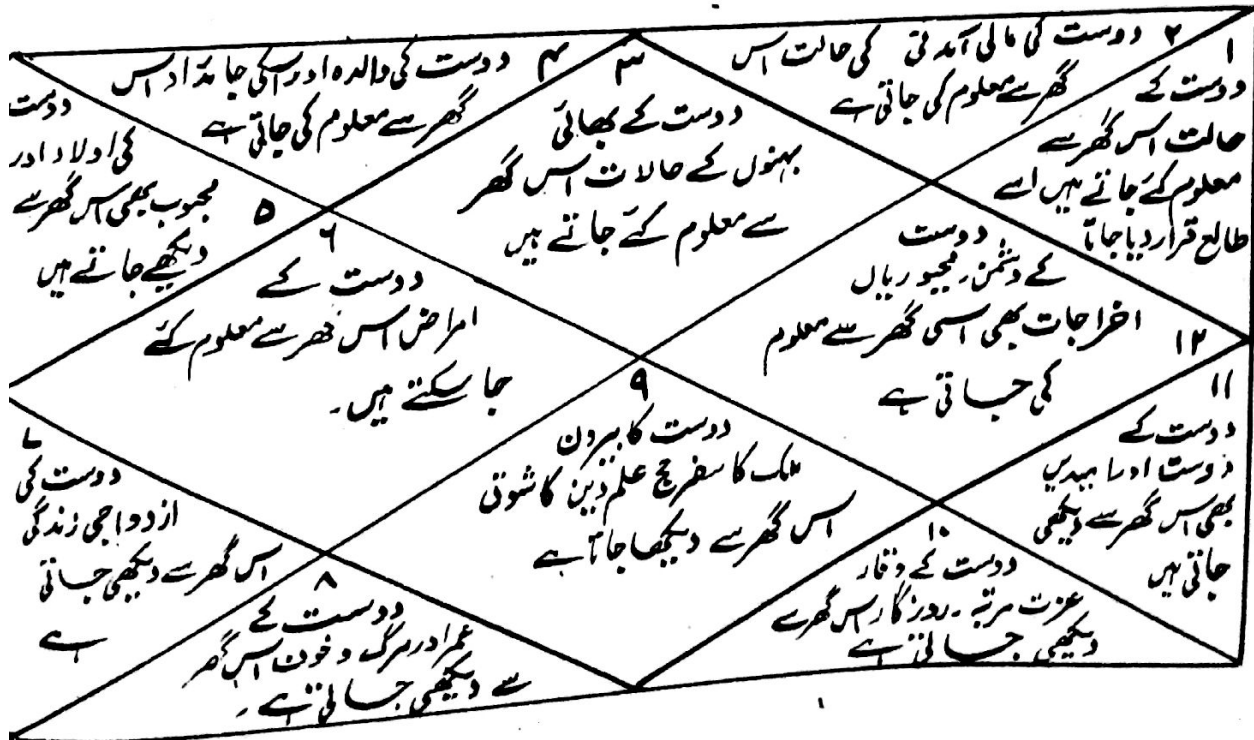 ۱
دوست کے
حالت اس گھر سے
معلوم کئے جاتے ہیں اسے
طالع قرار دیا جاتا
۲ دوست کی مالی آمدنی کی حالت اس
گھر سے معلوم کی جاتی ہے
۳
دوست کے بھائی
بہنوں کے حالات اس گھر
سے معلوم کئے جاتے ہیں
۴ دوست کی والدہ اور اسکی جائداد اس
گھر سے معلوم کی جاتی ہے
دوست
کی اولاد اور
محبوب بھی اس گھر سے
۵ دیکھے جاتے ہیں
۶
دوست کے
امراض اس گھر سے معلوم کئے
جا سکتے ہیں۔
۷
دوست کی
ازدواجی زندگی
اس گھر سے دیکھی جاتی
ہے
۸
دوست کے
عمر اور مرگ و خون اس گھر
سے دیکھی جاتی ہے۔
۹
دوست کا بیرون
ملک کا سفر حج علم دین کا شوق
اس گھر سے دیکھا جاتا ہے
۱۰
دوست کے وقار
عزت مرتبہ۔ روزگار اس گھر سے
دیکھی جاتی ہے
۱۱
دوست کے
دوست اور امیدیں
بھی اس گھر سے دیکھی
جاتی ہیں
۱۲
دوست
کے دشمن
اخراجات بھی اسی گھر سے معلوم
کی جاتی ہے